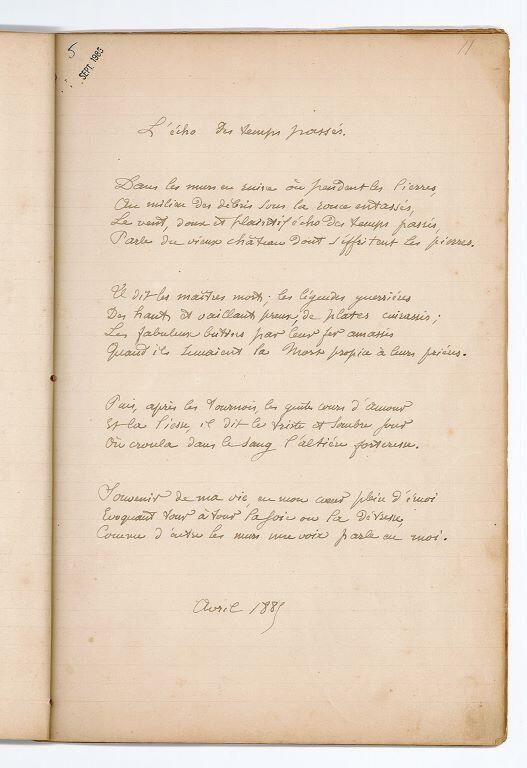 5
SEPT. 1983
11
L'écho des temps passés.
Dans les murs en ruine où pendent les lierres,
Au milieu des débris sous la ronce entassés,
Le vent, doux et plaintif écho des temps passés,
Parle du vieux château dont s'effritent les pierres.
Il dit les maîtres morts; les légendes guerrières
Des hauts et vaillants preux, de plates cuirassés;
Les fabuleux butins par leur fer amassés
Quand ils semaient la Mort propice à leurs prières.
Puis, après les Tournois, les gentes cours d'Amour
Et la liesse, il dit le triste et sombre jour
Où croula dans le sang l'altière forteresse.
Souvenir de ma vie, en mon cœur plein d'émoi
Evoquant tour à tour la joie ou la détresse,
Comme d'entre les murs une voix parle en moi.
Avril 188